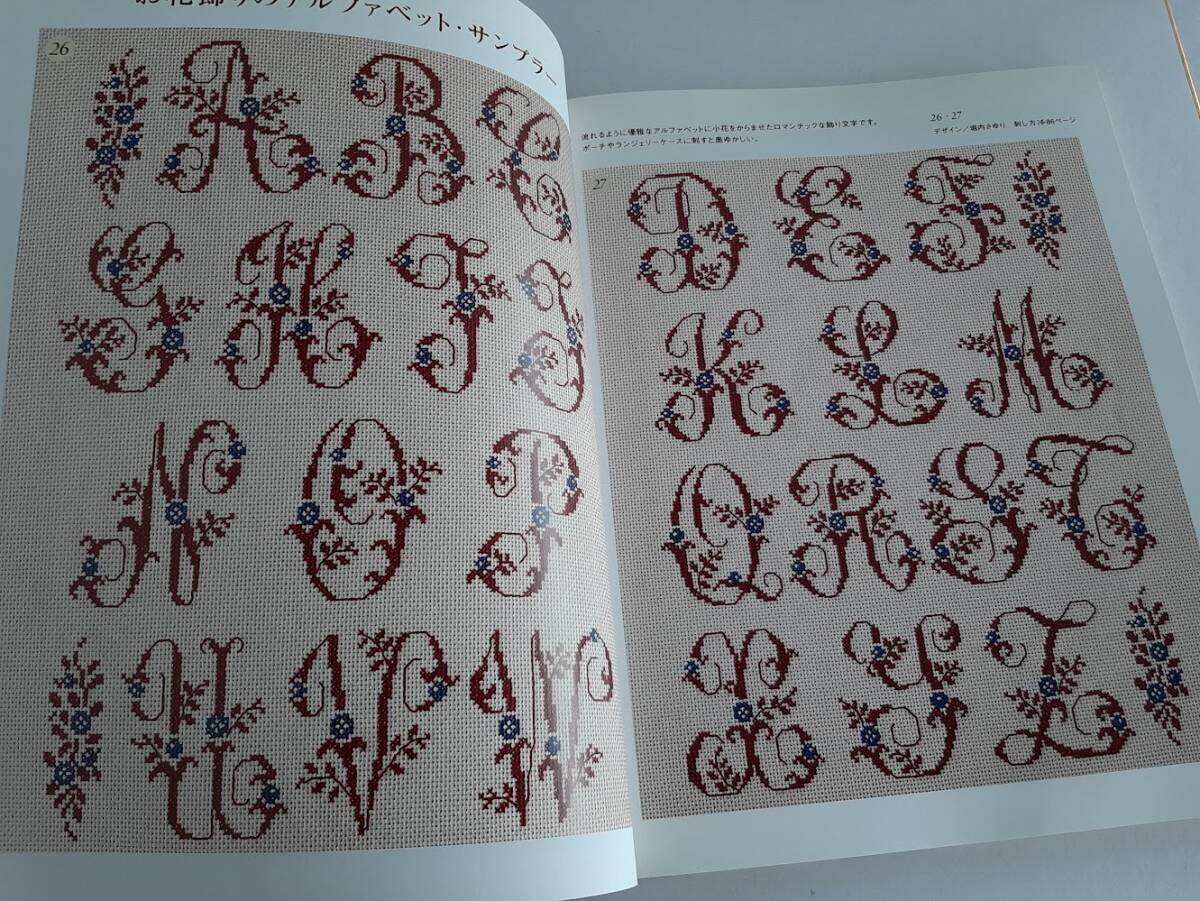 お花飾りのアルファベット・サンプラー
26
A B C
G H I J
N O P
U V W
流れるように優雅なアルファベットに小花をからませたロマンチックな飾り文字です。
ポーチやランジェリーケースに刺すと奥ゆかしい。
26・27
デザイン／堀内さゆり 刺し方76・86ページ
27
D E F
K L M
Q R S T
X Y Z